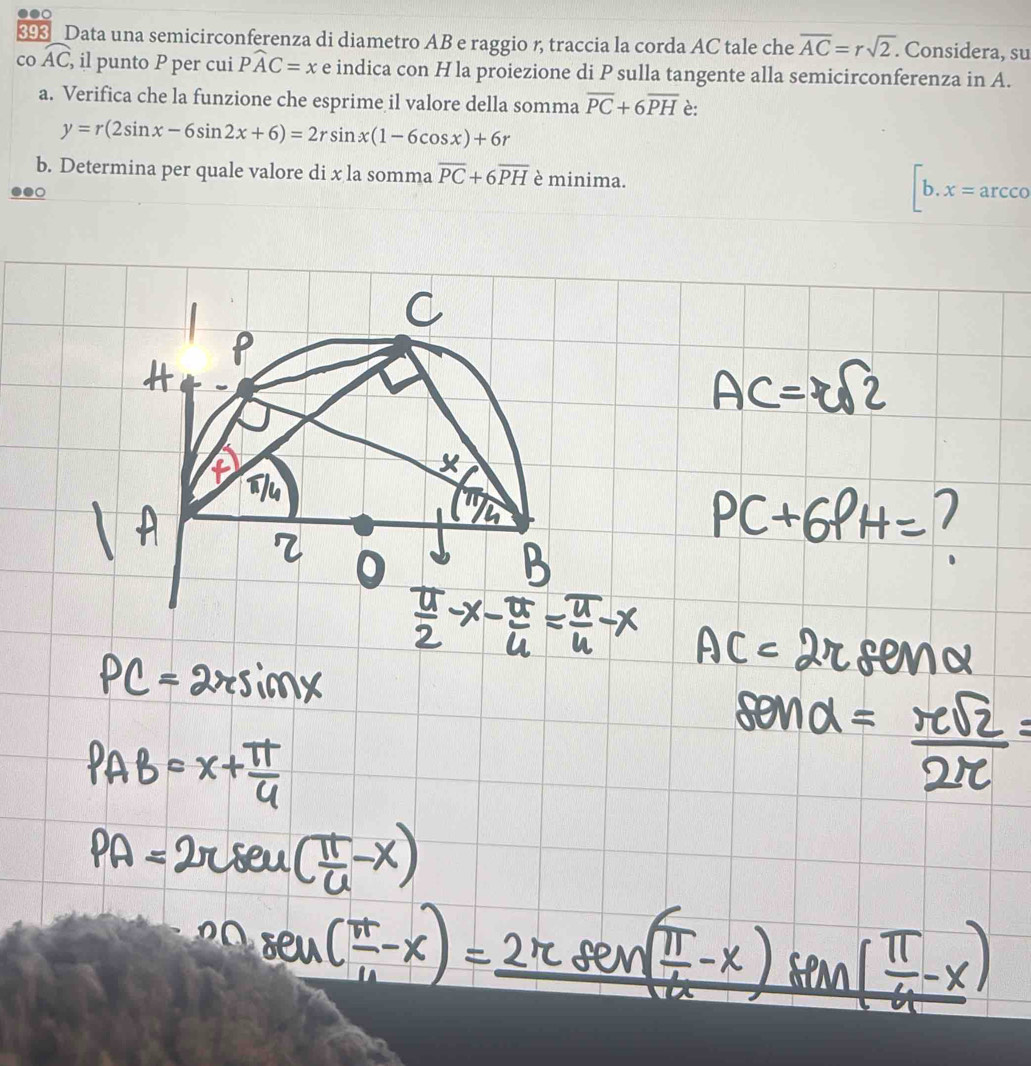 393 Data una semicirconferenza di diametro AB e raggio r, traccia la corda AC tale che AC = r√2. Considera, su
co AC, il punto P per cui PÂC = x e indica con H la proiezione di P sulla tangente alla semicirconferenza in A.
a. Verifica che la funzione che esprime il valore della somma PC + 6PH è:
y = r(2sinx − 6sin2x + 6) = 2rsinx(1 − 6cosx) + 6r
b. Determina per quale valore di x la somma PC + 6PH è minima.
[b. x = arcco
C
P
H
AC = r√2
x
π/4
x
π/4
A
r
O
B
PC + 6PH = ?
π/2 - x - π/4 = π/4 - x
AC = 2r sen α
PC = 2r sin x
sen α = r√2/2r =
PAB = x + π/4
PA = 2r sen(π/4 - x)
PA sen(π/4 - x) = 2r sen(π/4 - x) sen(π/4 - x)